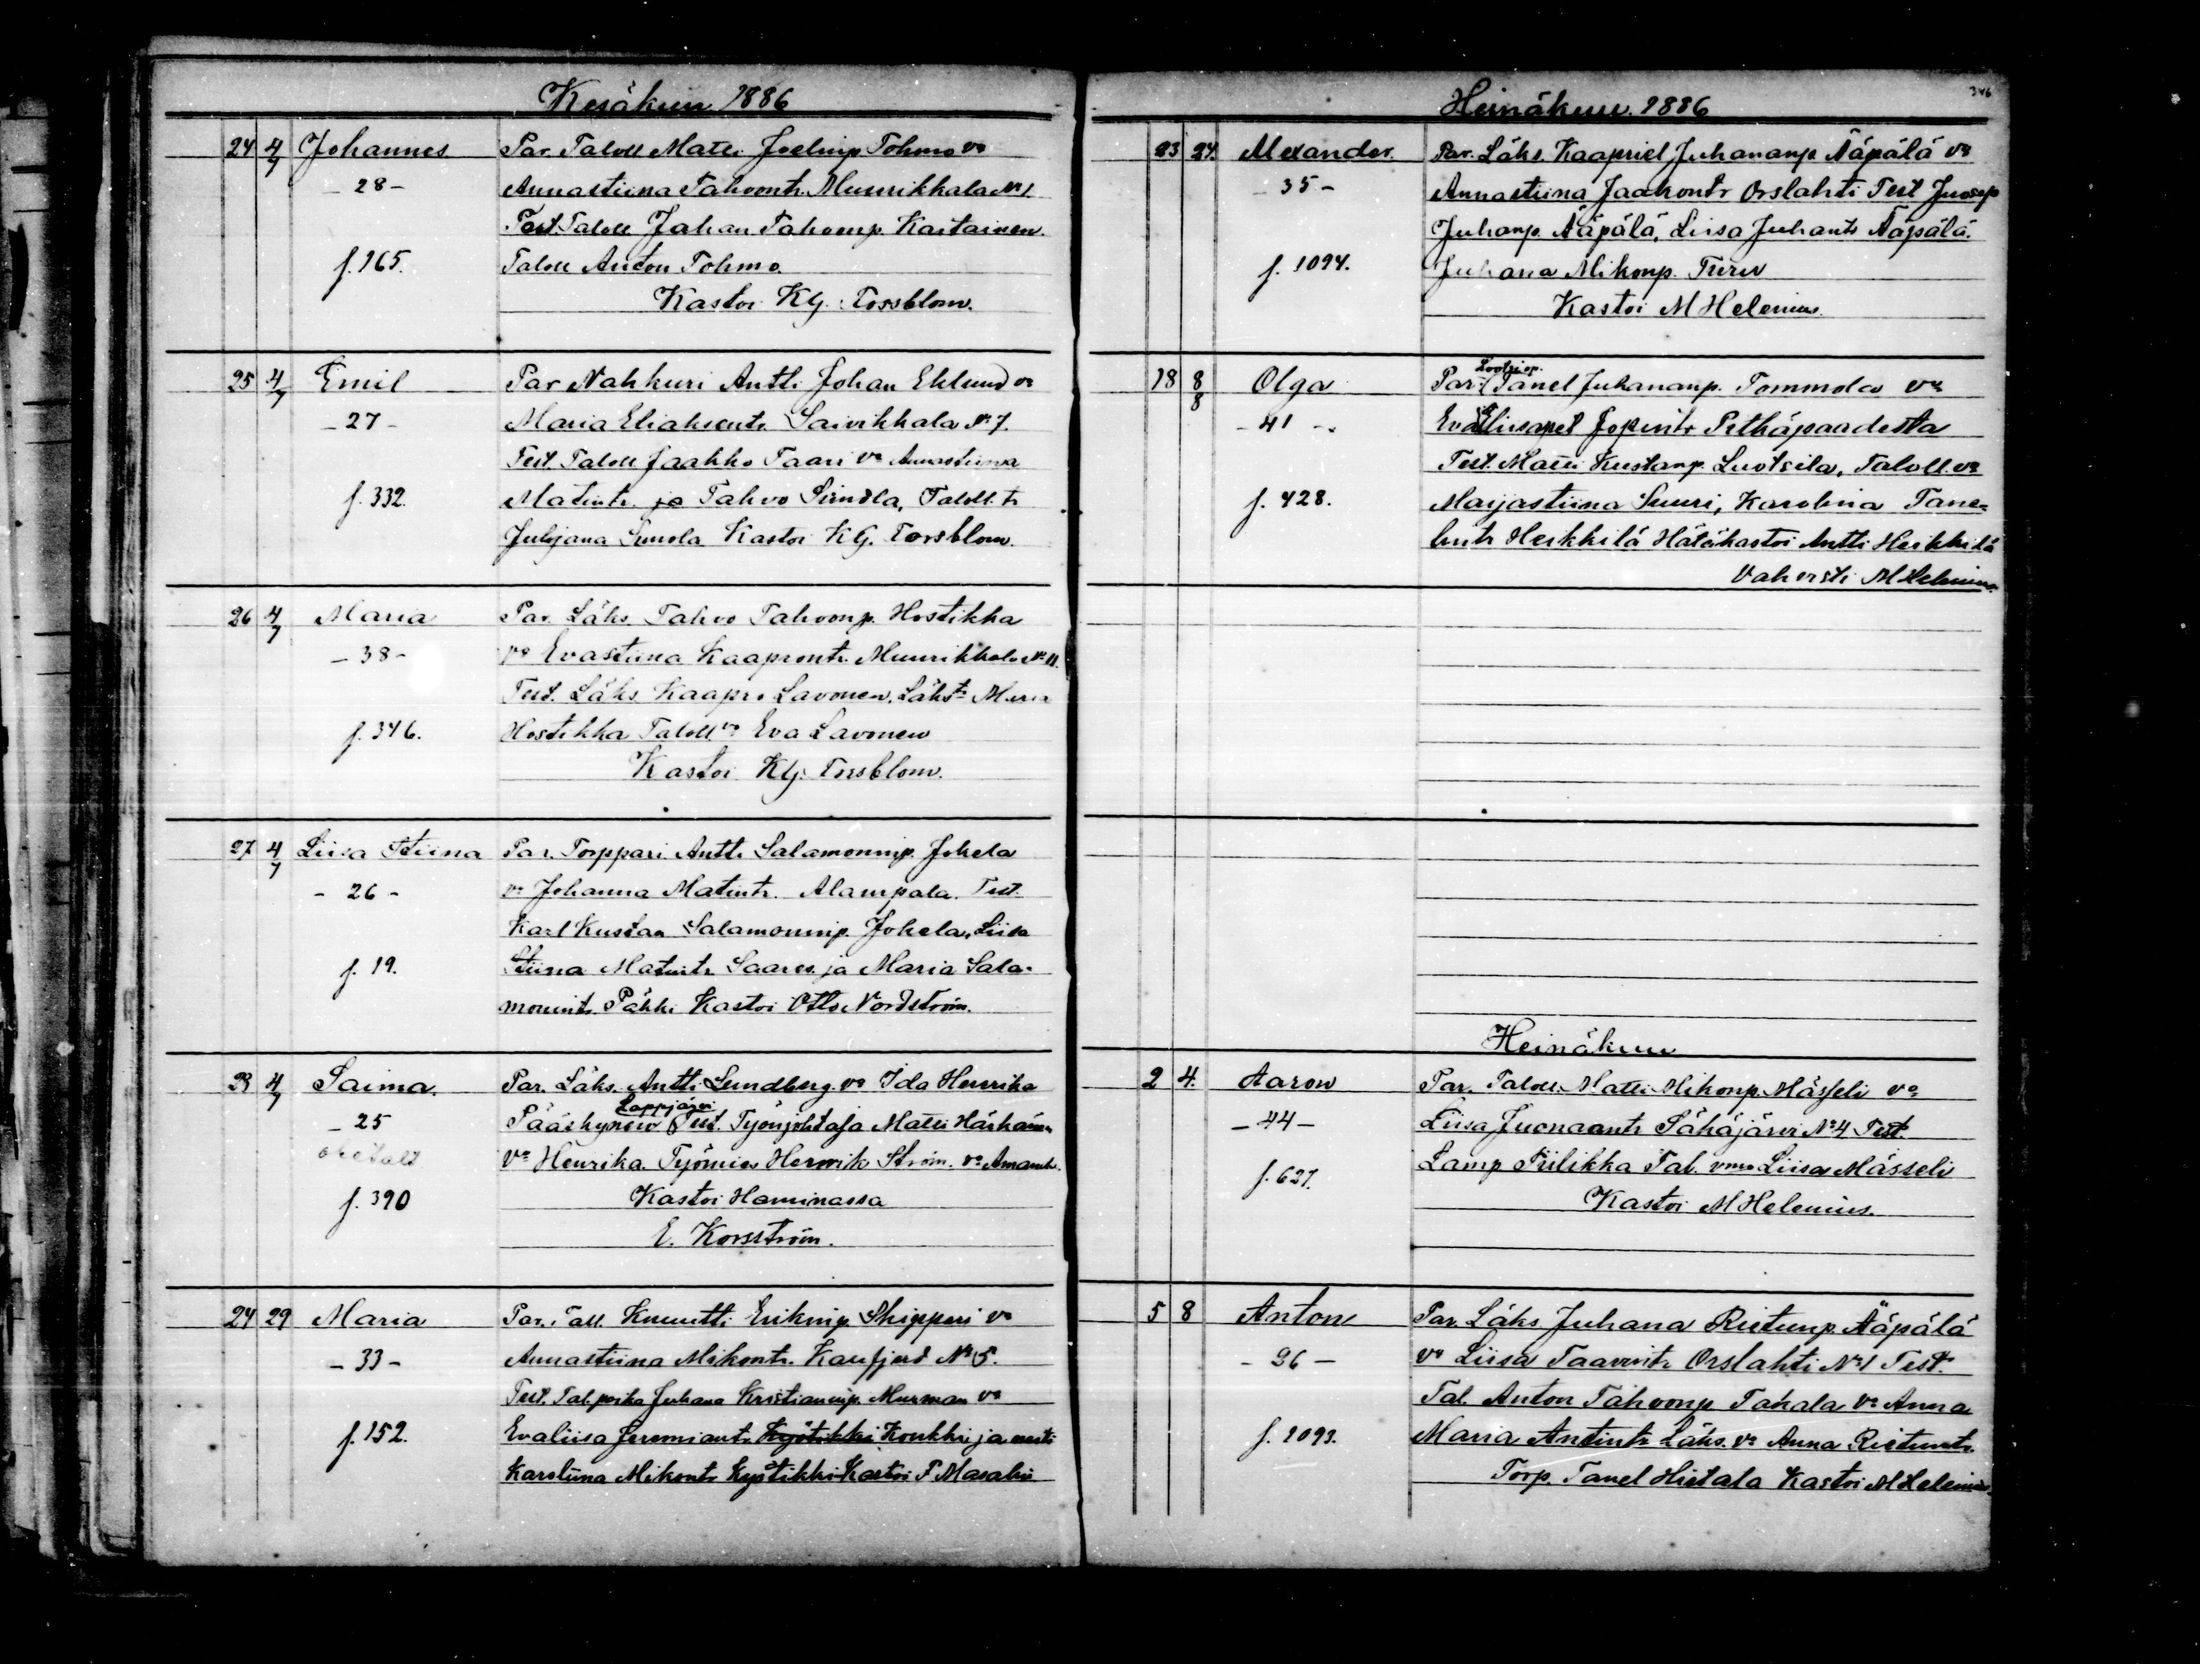 Kesäkuu 1886
24 4/7 Johannes Par. Taloll Matti Joelinp. Tohmo vo
- 28 - Annastiina Tahvontr. Muurikkala No 1.
Test. Taloll Johan Tahvonp. Kaitainen.
f. 165. Taloll Anton Tohmo.
Kastoi KG. Forsblom.
25 4/7 Emil Par Nahkuri Antti Johan Eklund vo
- 27 - Maria Eliaksentr. Saivikkala No 7.
Test. Taloll Jaakko Taari vo Annastiina
f. 332. Matintr. ja Tahvo Simola, Taloll. tr
Julijana Simola Kastoi KG. Forsblom.
26 4/7 Maria Par. Läks. Tahvo Tahvonp. Hostikka
- 38 - vo Evastiina Kaaprontr. Muurikkala No 11.
Test. Läks. Kaapro Lavonen, Läks tr Maria
f. 346. Hostikka Taloll. vo Eva Lavonen
Kastoi KG. Forsblom.
27 4/7 Liisa Stiina Par. Torppari Antti Salamoninp. Jokela
- 26 - vo Johanna Matintr. Alaurpala. Test.
Karl Kustaa Salamoninp. Jokela, Liisa
f. 19. Stiina Matintr. Saares ja Maria Sala-
monintr. Päkki Kastoi Otto Nordström.
23 4/7 Saima. Par. Läks. Antti Lundberg vo Ida Henrika
Lappjärvi
- 25 Pääskynen Test. Työnjohtaja Matti Härkänen
vo Henrika. Työmies Henrik Ström. vo Amanda.
f. 390 Kastoi Haminassa
E. Korsström.
24 29 Maria Par. Tall. Knuutti Erikinp. Skippari vo
- 33 - Annastiina Mikontr. Kanfjerd No 5.
Test. Tal. poika Juhana Kristianinp. Murman vo
f. 152. Evaliisa Jeremiantr. Kyötikki Koukki ja neiti
Karoliina Mikontr Kyötikki Kastoi F Masalin
346
Heinäkuu. 1886
23 24. Alexander. Par. Läks. Kaapriel Juhananp. Ääpälä vo
- 35 - Annastiina Jaakontr Orslahti Test Juosep
Juhanp. Ääpälä, Liisa Juhantr Ääpälä.
f. 1094. Juhana Mikonp. Turu
Kastoi M Helenius.
18 8/8 Olga Par. Tanel Juhananp. Tommola vo
- 41 - Eva Liisapet Jopintr Pethäpaadesta
Test. Matti Kustanp. Luotsila, Taloll. vo
f. 428. Maijastiina Suuri, Karolina Tane-
lintr Heikkilä Hätäkastoi Antti Heikkilä
Vahvisti M Helenius.
Heinäkuu
2 4. Aaron Par. Taloll. Matti Mikonp. Mässeli vo
- 44 - Liisa Juonaantr Sähäjärvi No 4 Test.
f. 627. Lamp. Piilikka Tal. vmo Liisa Mässeli
Kastoi M Helenius.
5 8 Anton Par. Läks. Juhana Rietunp. Ääpälä
- 26 - vo Liisa Taavintr Orslahti No 1 Test.
Tal. Anton Tahvonp Tahala vo Anna
f. 1093. Maria Antintr Läks. vo Anna Rietuntr.
Torp. Tanel Hietala Kastoi M Helenius.